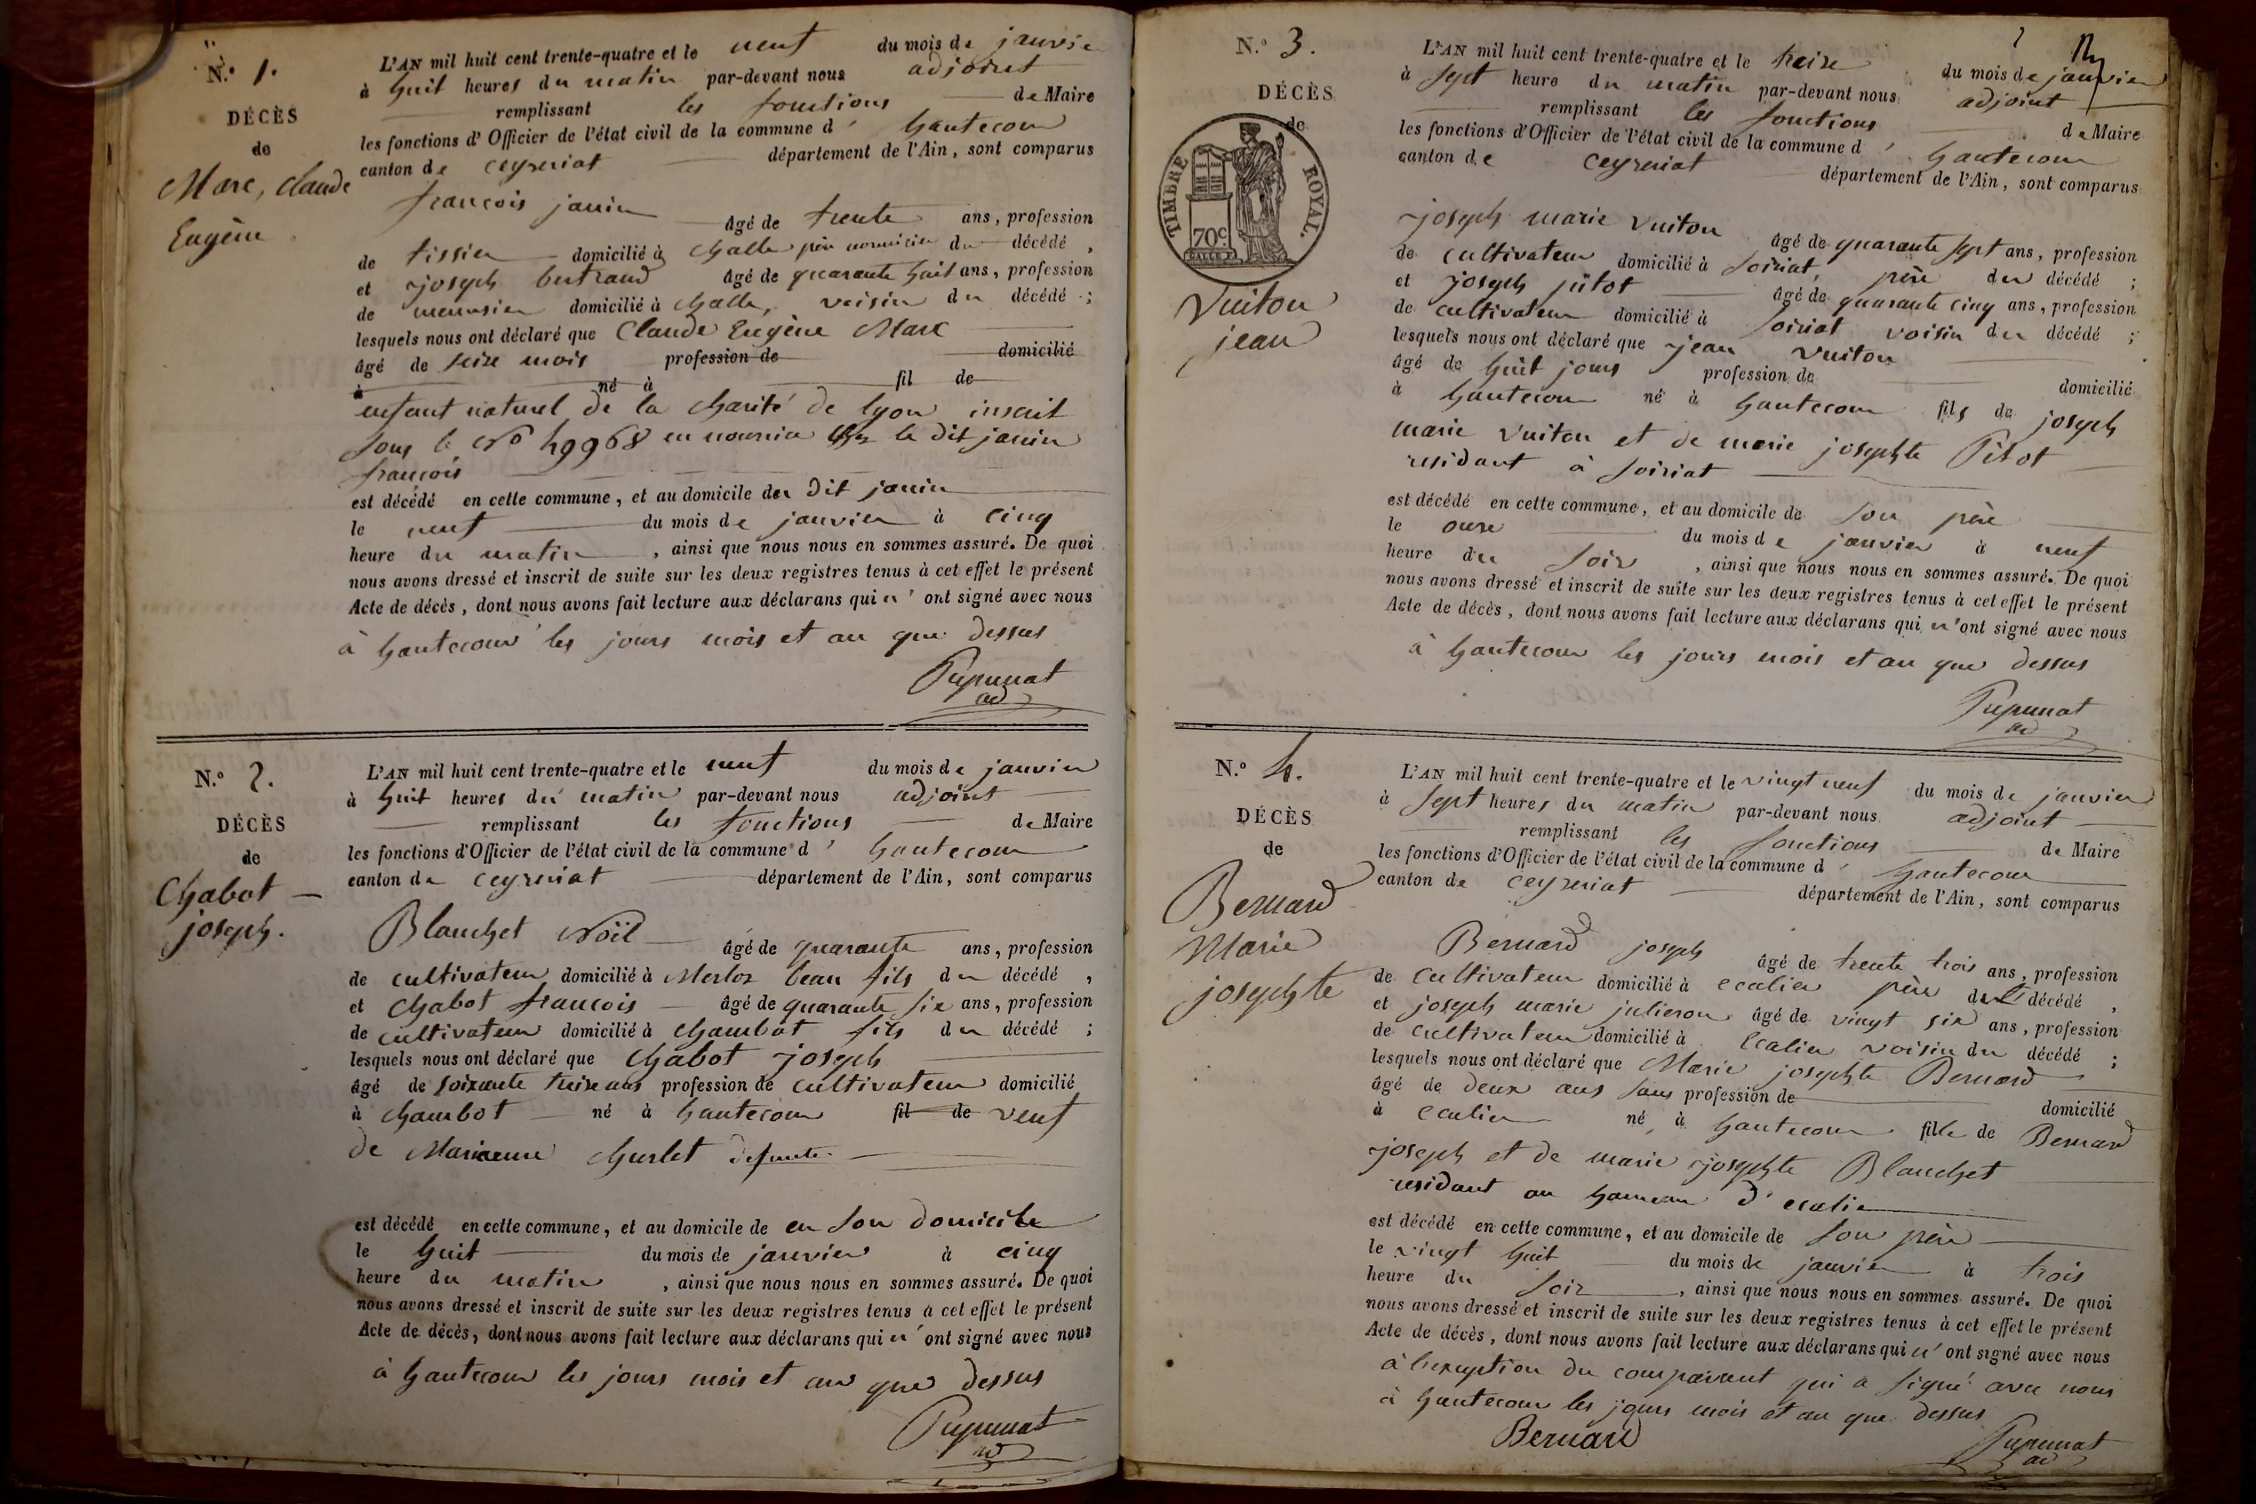 N.º 1.
DÉCÈS
de
Marc, Claude
Eugène
L'AN mil huit cent trente-quatre et le neuf du mois de janvier
à huit heures du matin par-devant nous adjoint
remplissant les fonctions de Maire
les fonctions d'Officier de l'état civil de la commune d' hautecour
canton de ceyzeriat département de l'Ain, sont comparus
francois janin âgé de trente ans, profession
de tissier domicilié à Challe père nourricier du décédé,
et joseph bertrand âgé de quarante huit ans, profession
de menusier domicilié à Challe, voisin du décédé ;
lesquels nous ont déclaré que Claude Eugène Marc
âgé de seize mois profession de domicilié
à né à fil de
enfant naturel de la charité de lyon inscrit
sous le No 49968 en nourrice chez le dit janin
francois
est décédé en cette commune, et au domicile du dit janin
le neuf du mois de janvier à cinq
heure du matin, ainsi que nous nous en sommes assuré. De quoi
nous avons dressé et inscrit de suite sur les deux registres tenus à cet effet le présent
Acte de décès, dont nous avons fait lecture aux déclarans qui n'ont signé avec nous
à hautecour les jours mois et an que dessus
Pupunat
ad
N.º 2.
DÉCÈS
de
Chabot
joseph.
L'AN mil huit cent trente-quatre et le neuf du mois de janvier
à huit heures du matin par-devant nous adjoint
remplissant les fonctions de Maire
les fonctions d'Officier de l'état civil de la commune d' hautecour
canton de ceyzeriat département de l'Ain, sont comparus
Blanchet Noël âgé de quarante ans, profession
de cultivateur domicilié à Merloz beau fils du décédé,
et Chabot francois âgé de quarante six ans, profession
de cultivateur domicilié à Chambot fils du décédé ;
lesquels nous ont déclaré que Chabot joseph
âgé de soixante treize ans profession de cultivateur domicilié
à chambot né à hautecour fil de veuf
de Marianne defunte
est décédé en cette commune, et au domicile de en son domicile
le huit du mois de janvier à cinq
heure du matin, ainsi que nous nous en sommes assuré. De quoi
nous avons dressé et inscrit de suite sur les deux registres tenus à cet effet le présent
Acte de décès, dont nous avons fait lecture aux déclarans qui n'ont signé avec nous
à hautecour les jours mois et an que dessus
Pupunat
ad
N.º 3.
DÉCÈS
de
TIMBRE ROYAL.
70c
Vuiton
jean
L'AN mil huit cent trente-quatre et le treize du mois de janvier
à sept heure du matin par-devant nous adjoint
remplissant les fonctions de Maire
les fonctions d'Officier de l'état civil de la commune d' hautecour
canton de ceyzeriat département de l'Ain, sont comparus
joseph marie Vuiton âgé de quarante sept ans, profession
de cultivateur domicilié à soiriat, père du décédé ;
et joseph pitot âgé de quarante cinq ans, profession
de cultivateur domicilié à soiriat voisin du décédé ;
lesquels nous ont déclaré que jean Vuiton
âgé de huit jours profession de domicilié
à hautecour né à hautecour fils de joseph
marie Vuiton et de marie josephte Pitot
residant à soiriat
est décédé en cette commune, et au domicile de son père
le onze du mois de janvier à neuf
heure du soir, ainsi que nous nous en sommes assuré. De quoi
nous avons dressé et inscrit de suite sur les deux registres tenus à cet effet le présent
Acte de décès, dont nous avons fait lecture aux déclarans qui n'ont signé avec nous
à hautecour les jours mois et an que dessus
Pupunat
ad
N.º 4.
DÉCÈS
de
Bernard
Marie
josephte
L'AN mil huit cent trente-quatre et le vingt neuf du mois de janvier
à sept heures du matin par-devant nous adjoint
remplissant les fonctions de Maire
les fonctions d'Officier de l'état civil de la commune d' hautecour
canton de ceyzeriat département de l'Ain, sont comparus
Bernard joseph âgé de trente trois ans, profession
de cultivateur domicilié à ecalier père de la décédé,
et joseph marie julieron âgé de vingt six ans, profession
de cultivateur domicilié à Ecalier voisin du décédé ;
lesquels nous ont déclaré que Marie josephte Bernard
âgé de deux ans sans profession de domicilié
à ecalier né à hautecour fille de Bernard
joseph et de marie josephte Blanchet
residant au hameau d'ecalier
est décédé en cette commune, et au domicile de son père
le vingt huit du mois de janvier à trois
heure du soir, ainsi que nous nous en sommes assuré. De quoi
nous avons dressé et inscrit de suite sur les deux registres tenus à cet effet le présent
Acte de décès, dont nous avons fait lecture aux déclarans qui n'ont signé avec nous
à l'exeption du comparant qui a signé avec nous
à hautecour les jours mois et an que dessus
Bernard
Pupunat
ad